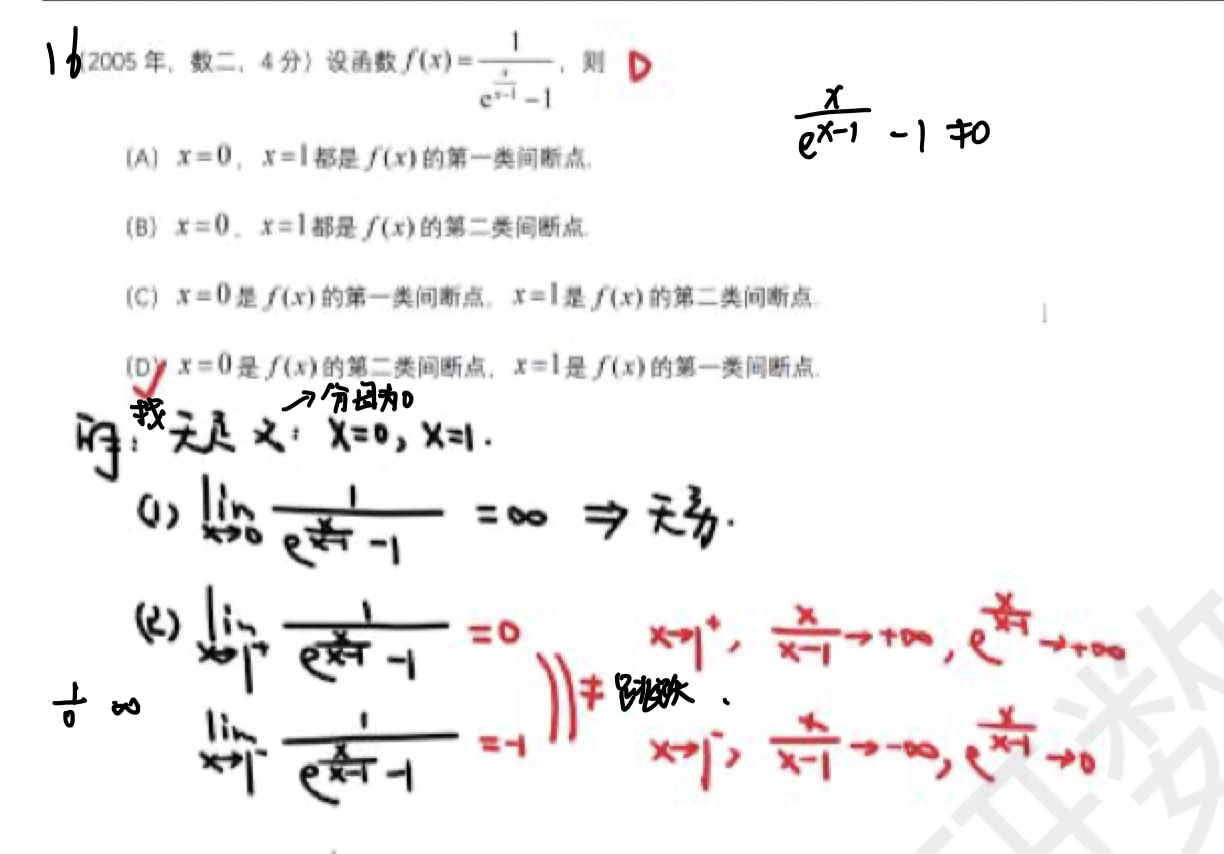 16 (2005 年, 数二, 4 分) 设函数 f(x) = 1/(e^(x/(x-1)) - 1), 则 D
x/e^(x-1) - 1 ≠ 0
(A) x = 0, x = 1 都是 f(x) 的第一类间断点.
(B) x = 0, x = 1 都是 f(x) 的第二类间断点.
(C) x = 0 是 f(x) 的第一类间断点, x = 1 是 f(x) 的第二类间断点.
(D) ✓ x = 0 是 f(x) 的第二类间断点, x = 1 是 f(x) 的第一类间断点.
→分母为0
解: 找无定义: x=0, x=1.
(1) lim x→0 1/(e^(x/(x-1)) - 1) = ∞ ⇒ 无穷.
(2) lim x→1⁺ 1/(e^(x/(x-1)) - 1) = 0 x→1⁺, x/(x-1) → +∞, e^(x/(x-1)) → +∞
1/0 ∞ ≠ 跳跃.
lim x→1⁻ 1/(e^(x/(x-1)) - 1) = -1 x→1⁻, x/(x-1) → -∞, e^(x/(x-1)) → 0
数